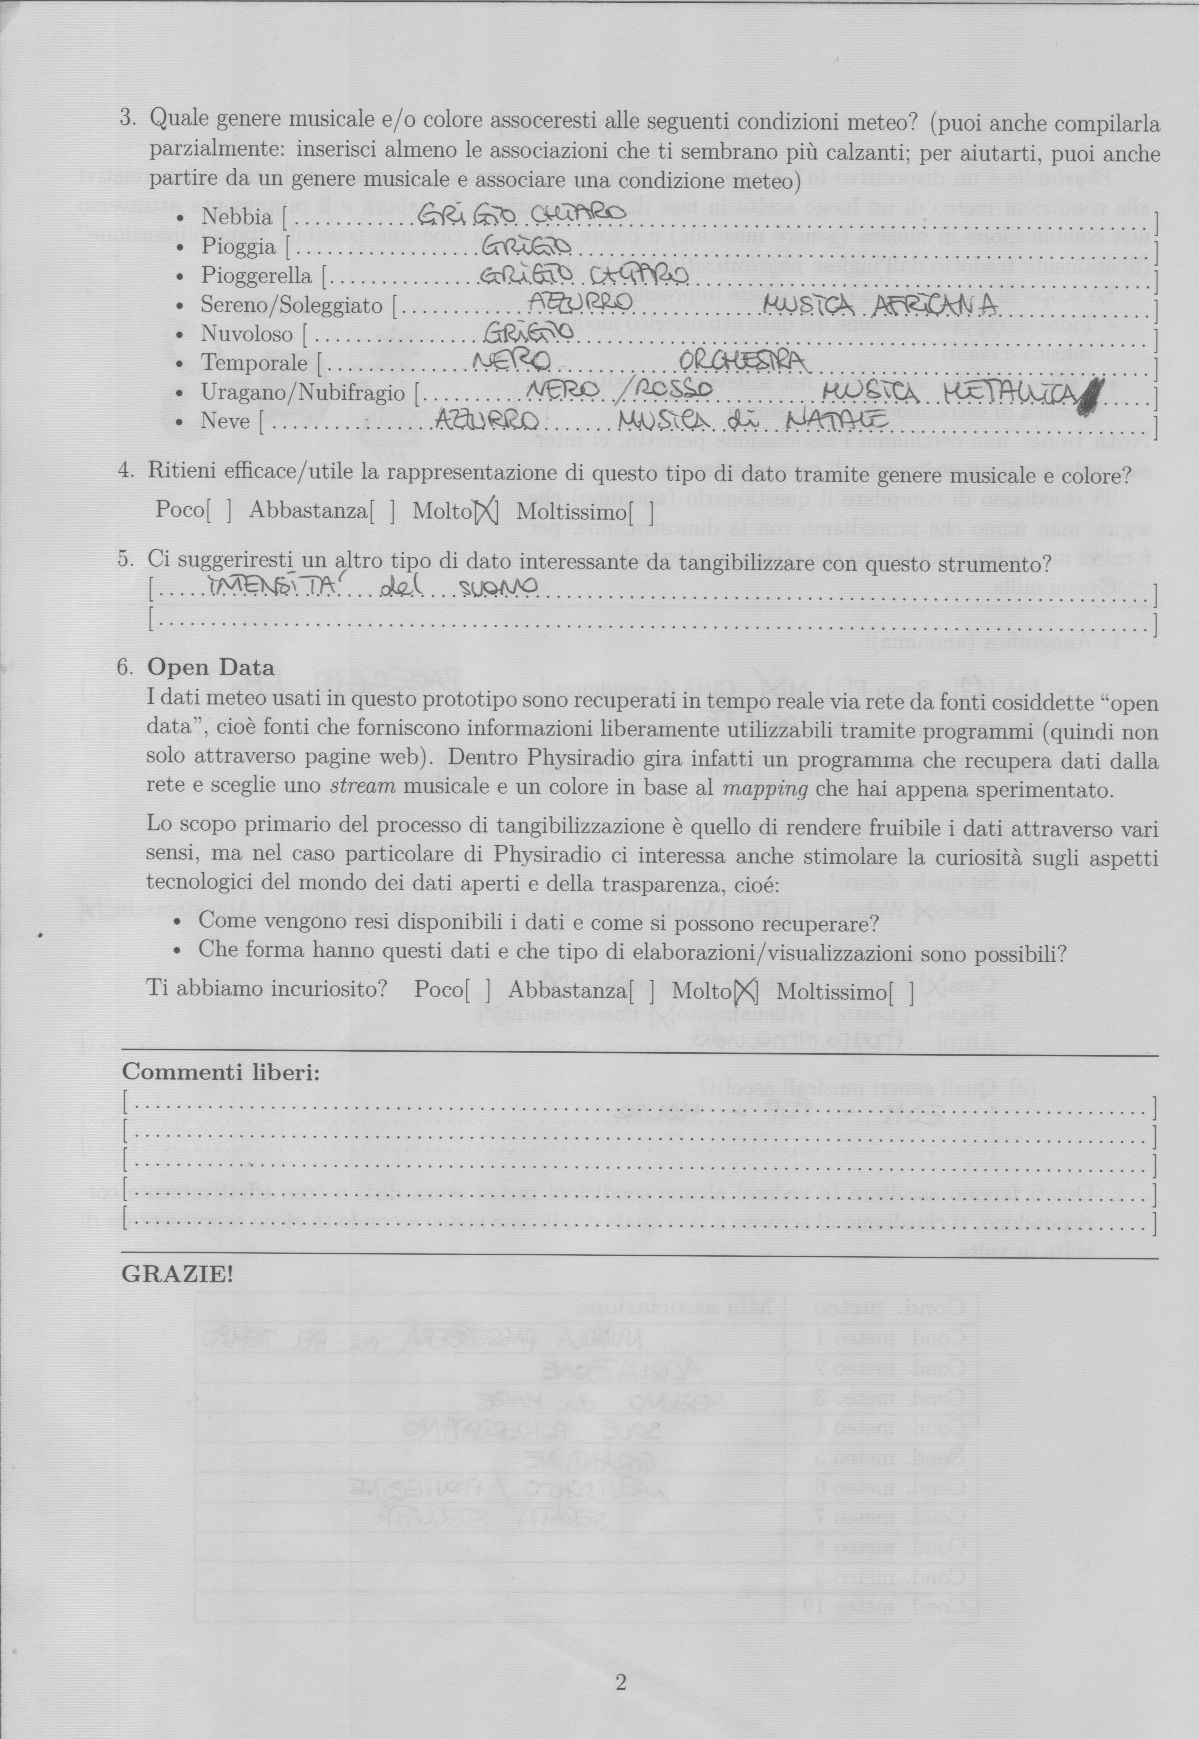 3. Quale genere musicale e/o colore assoceresti alle seguenti condizioni meteo? (puoi anche compilarla
parzialmente: inserisci almeno le associazioni che ti sembrano più calzanti; per aiutarti, puoi anche
partire da un genere musicale e associare una condizione meteo)
• Nebbia [ GRIGIO CHIARO ]
• Pioggia [ GRIGIO ]
• Pioggerella [ GRIGIO CHIARO ]
• Sereno/Soleggiato [ AZZURRO MUSICA AFRICANA ]
• Nuvoloso [ GRIGIO ]
• Temporale [ NERO ORCHESTRA ]
• Uragano/Nubifragio [ NERO/ROSSO MUSICA METALLICA ]
• Neve [ AZZURRO MUSICA di NATALE ]
4. Ritieni efficace/utile la rappresentazione di questo tipo di dato tramite genere musicale e colore?
Poco[ ] Abbastanza[ ] Molto[X] Moltissimo[ ]
5. Ci suggeriresti un altro tipo di dato interessante da tangibilizzare con questo strumento?
[ INTENSITA' del SUONO ]
[ ]
6. Open Data
I dati meteo usati in questo prototipo sono recuperati in tempo reale via rete da fonti cosiddette “open
data”, cioè fonti che forniscono informazioni liberamente utilizzabili tramite programmi (quindi non
solo attraverso pagine web). Dentro Physiradio gira infatti un programma che recupera dati dalla
rete e sceglie uno stream musicale e un colore in base al mapping che hai appena sperimentato.
Lo scopo primario del processo di tangibilizzazione è quello di rendere fruibile i dati attraverso vari
sensi, ma nel caso particolare di Physiradio ci interessa anche stimolare la curiosità sugli aspetti
tecnologici del mondo dei dati aperti e della trasparenza, cioé:
• Come vengono resi disponibili i dati e come si possono recuperare?
• Che forma hanno questi dati e che tipo di elaborazioni/visualizzazioni sono possibili?
Ti abbiamo incuriosito? Poco[ ] Abbastanza[ ] Molto[X] Moltissimo[ ]
Commenti liberi:
[ ]
[ ]
[ ]
[ ]
[ ]
GRAZIE!
2